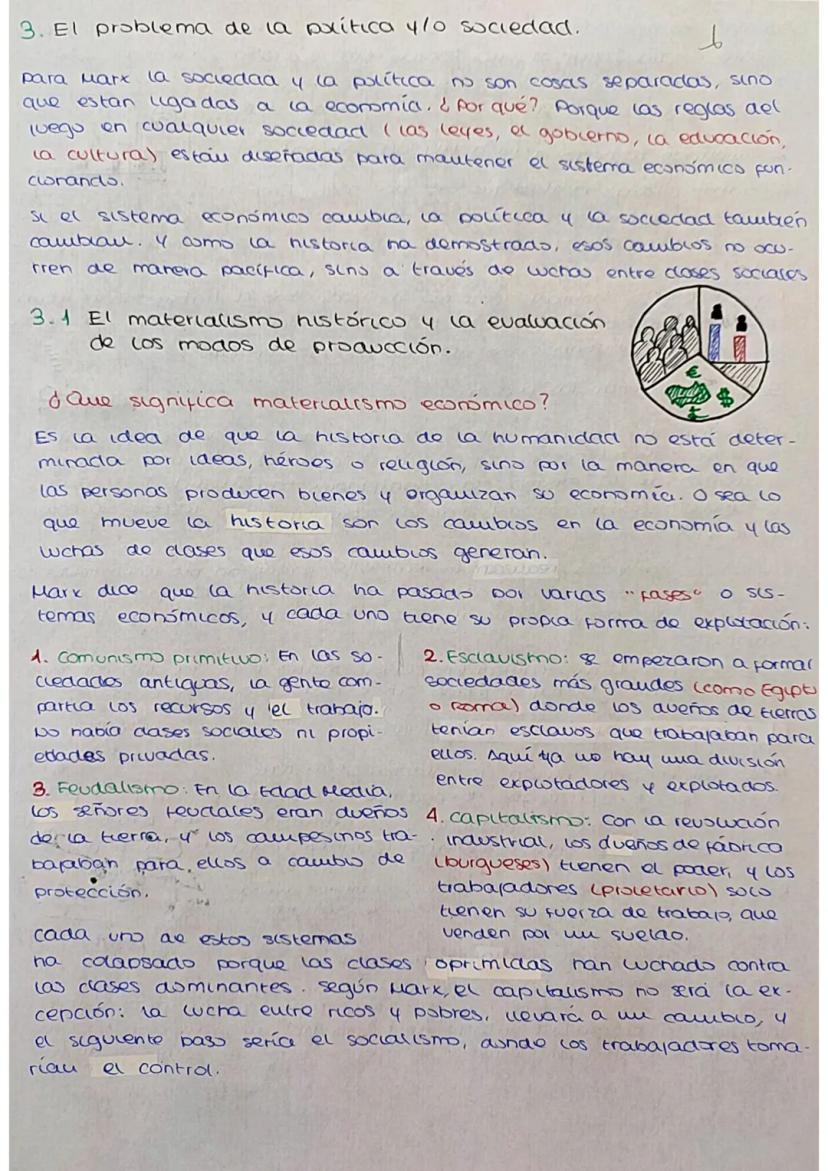 3. El problema de la política y/o sociedad.
6
Para Marx la sociedad y la política no son cosas separadas, sino
que estan ligadas a la economía. ¿Por qué? Porque las reglas del
juego en cualquier sociedad (las leyes, el gobierno, la educación,
la cultura) están diseñadas para mantener el sistema económico fun-
cionando.
Si el sistema económico cambia, la política y la sociedad también
cambian. Y como la historia ha demostrado, esos cambios no ocu-
rren de manera pacífica, sino a través de luchas entre clases sociales
3.1 El materialismo histórico y la evaluación
de los modos de producción.
€
$
£
¿Que significa materialismo económico?
Es la idea de que la historia de la humanidad no está deter-
minada por ideas, héroes o religión, sino por la manera en que
las personas producen bienes y organizan su economía. O sea lo
que mueve la historia son los cambios en la economía y las
luchas de clases que esos cambios generan.
Marx dice que la historia ha pasado por varias "fases" o sis-
temas económicos, y cada uno tiene su propia forma de explotación:
1. Comunismo primitivo: En las so-
ciedades antiguas, la gente com-
partía los recursos y el trabajo.
No había clases sociales ni propi-
edades privadas.
2. Esclavismo: se empezaron a formar
sociedades más grandes (como Egipto
o Roma) donde los dueños de tierras
tenían esclavos que trabajaban para
ellos. Aquí ya uno hay una división
entre explotadores y explotados.
3. Feudalismo: En la Edad Media,
los señores feudales eran dueños
de la tierra, y los campesinos tra-
bajaban para ellos a cambio de
protección.
4. Capitalismo: con la revolución
industrial, los dueños de fábrica
(burgueses) tienen el poder, y los
trabajadores (proletario) solo
tienen su fuerza de trabajo, que
venden por un sueldo.
Cada uno de estos sistemas
ha colapsado porque las clases oprimidas han luchado contra
las clases dominantes. Según Marx, el capitalismo no será la ex-
cepción: la lucha entre ricos y pobres, llevará a un cambio, y
el siguiente paso sería el socialismo, donde los trabajadores toma-
rían el control.